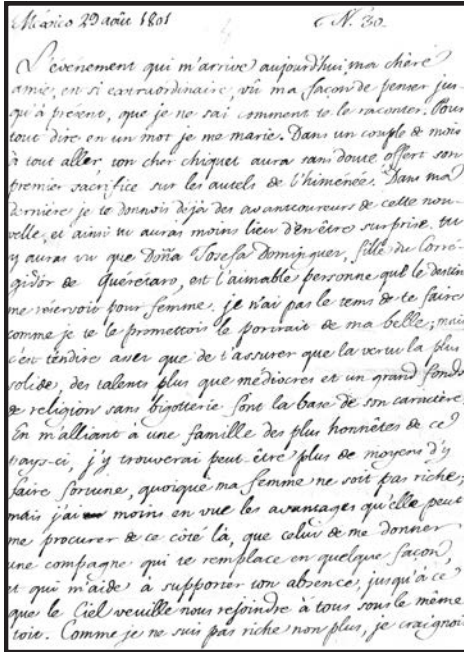 México 29 août 1801 N.° 30.
L'événement qui m'arrive aujourd'hui, ma chère
amie, en si extraordinaire, vû ma façon de penser jus-
qu'à présent, que je ne sai comment te le raconter. Pour
tout dire en un mot je me marie. Dans un couple de mois
à tout aller ton cher chiquet aura sans doute offert son
premier sacrifice sur les autels de l'himénée. Dans ma
dernière je te donnois déja des avantcoureurs de cette nou-
velle, et ainsi tu auras moins lieu d'en être surprise. tu
y auras vu que Doña Josefa Dominguez, fille du Corré-
gidor de Quérétaro, est l'aimable personne que le destin
me réservoit pour femme. je n'ai pas le tems de te faire
comme je te le promettois le portrait de ma belle; mais
c'est t'en dire assez que de t'assurer que la vertu la plus
solide, des talents plus que médiocres et un grand fonds
de religion sans bigotterie font la base de son caractère.
En m'alliant à une famille des plus honnêtes de ce
pays-ci, j'y trouverai peut-être plus de moyens d'y
faire fortune, quoique ma femme ne soit pas riche;
mais j'ai moins en vue les avantages qu'elle peut
me procurer de ce côté là, que celui de me donner
une compagne qui te remplace en quelque façon,
et qui m'aide à supporter ton absence, jusqu'à ce
que le Ciel veuille nous rejoindre à tous sous le même
toit. Comme je ne suis pas riche non plus, je craignois